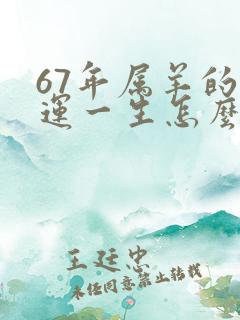 67年属羊的
运一生怎麽
王廷忠
未经同意禁止转载